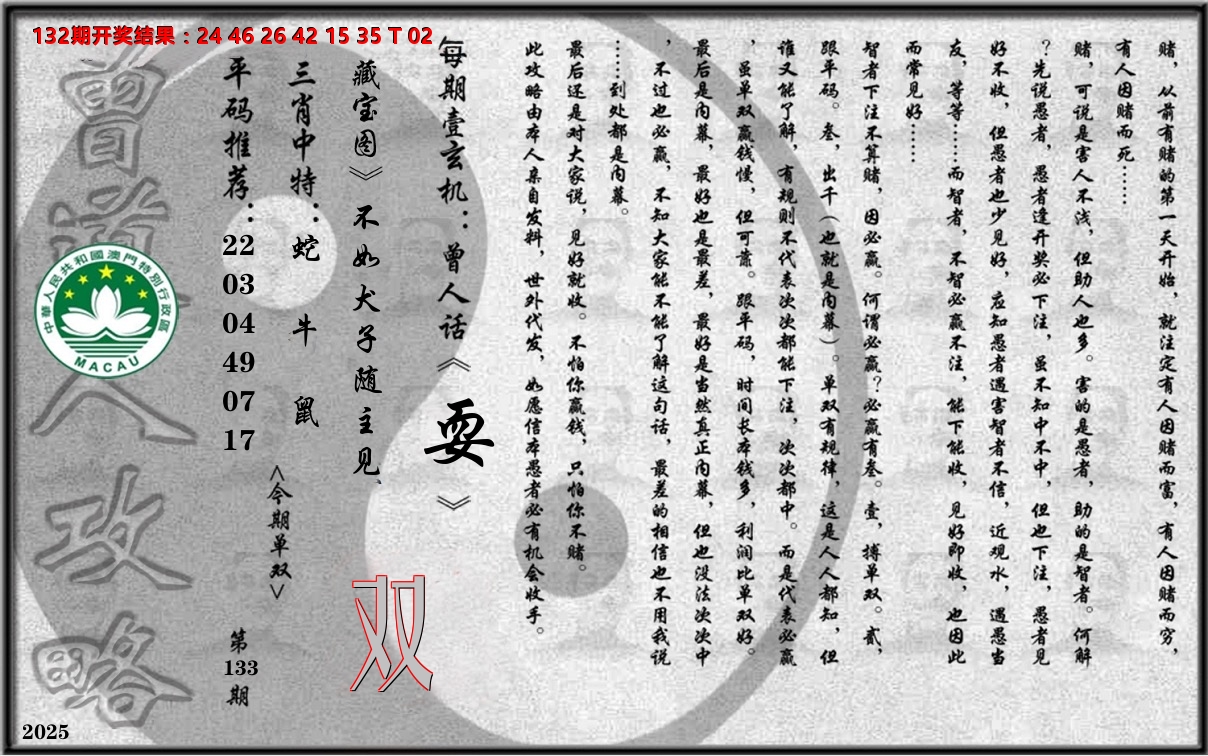 132期开奖结果：24 46 26 42 15 35 T 02
赌，从前有赌的第一天开始，就注定有人因赌而富，有人因赌而穷，
有人因赌而死……
赌，可说是害人不浅，但助人也多。害的是愚者，助的是智者。何解
？先说愚者，愚者逢开奖必下注，虽不知中不中，但也下注，愚者见
好不收，但愚者也少见好，应知愚者遇害智者不信，近观水，遇愚当
友，等等……而智者，不智必赢不注，能下能收，见好即收，也因此
而常见好……
智者下注不算赌，因必赢。何谓必赢？必赢有叁。壹，搏单双。贰，
跟平码。叁，出千（也就是内幕）。单双有规律，这是人人都知，但
谁又能了解，有规则不代表次次都能下注，次次都中。而是代表必赢
，虽单双赢钱慢，但可靠。跟平码，时间长本钱多，利润比单双好。
最后是内幕，最好也是最差，最好是当然真正内幕，但也没法次次中
，不过也必赢，不知大家能不能了解这句话，最差的相信也不用我说
……到处都是内幕。
最后还是对大家说，见好就收。不怕你赢钱，只怕你不赌。
此攻略由本人亲自发料，世外代发，如愿信本愚者必有机会收手。
每期壹玄机：曾人话《耍》
藏宝图》不如犬子随主见、
双
三肖中特：蛇 牛 鼠
<今期单双>
平码推荐：22 03 04 49 07 17
第133期
曾道人攻略
中華人民共和國澳門特別行政區
MACAU
2025